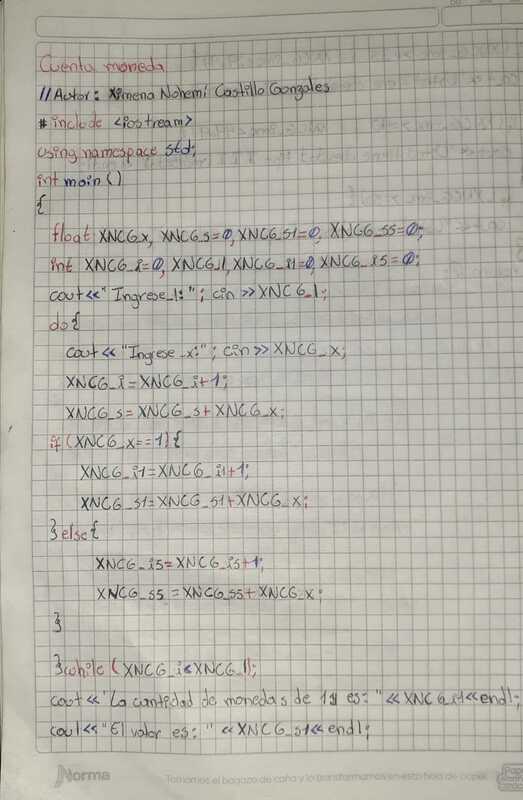 Cuenta moneda
//Autor: Ximena Nohemí Castillo Gonzales
# include <iostream>
using namespace std;
int main ()
{
float XNCG_x, XNCG_s=0, XNCG_s1=0, XNCG_s5=0;
int XNCG_i=0, XNCG_l, XNCG_i1=0, XNCG_i5=0;
cout<<"Ingrese_l:"; cin >>XNCG_l;
do{
cout<< "Ingrese_x:"; cin>> XNCG_x;
XNCG_i=XNCG_i+1;
XNCG_s=XNCG_s+XNCG_x;
if(XNCG_x==1){
XNCG_i1=XNCG_i1+1;
XNCG_s1=XNCG_s1+XNCG_x;
}else{
XNCG_i5=XNCG_i5+1;
XNCG_s5=XNCG_s5+XNCG_x;
}
}while (XNCG_i<XNCG_l);
cout<<"La cantidad de monedas de 1 es: "<<XNCG_i1<<endl;
cout<<"El valor es: "<<XNCG_s1<<endl;
Norma
Tomamos el bagazo de caña y lo transformamos en esta hoja de papel